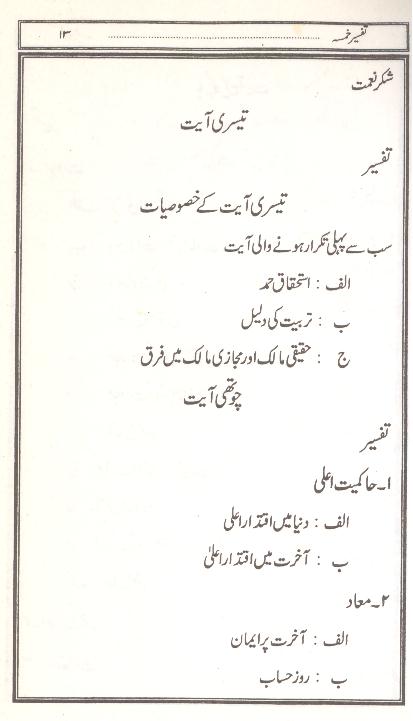 تفسیر خمسہ ........................................ ۱۳
شکر نعمت
تیسری آیت
تفسیر
تیسری آیت کے خصوصیات
سب سے پہلی تکرار ہونے والی آیت
الف : استحقاق حمد
ب : تربیت کی دلیل
ج : حقیقی مالک اور مجازی مالک میں فرق
چوتھی آیت
تفسیر
۱۔ حاکمیت اعلی
الف : دنیا میں اقتدار اعلی
ب : آخرت میں اقتدار اعلیٰ
۲۔ معاد
الف : آخرت پر ایمان
ب : روز حساب